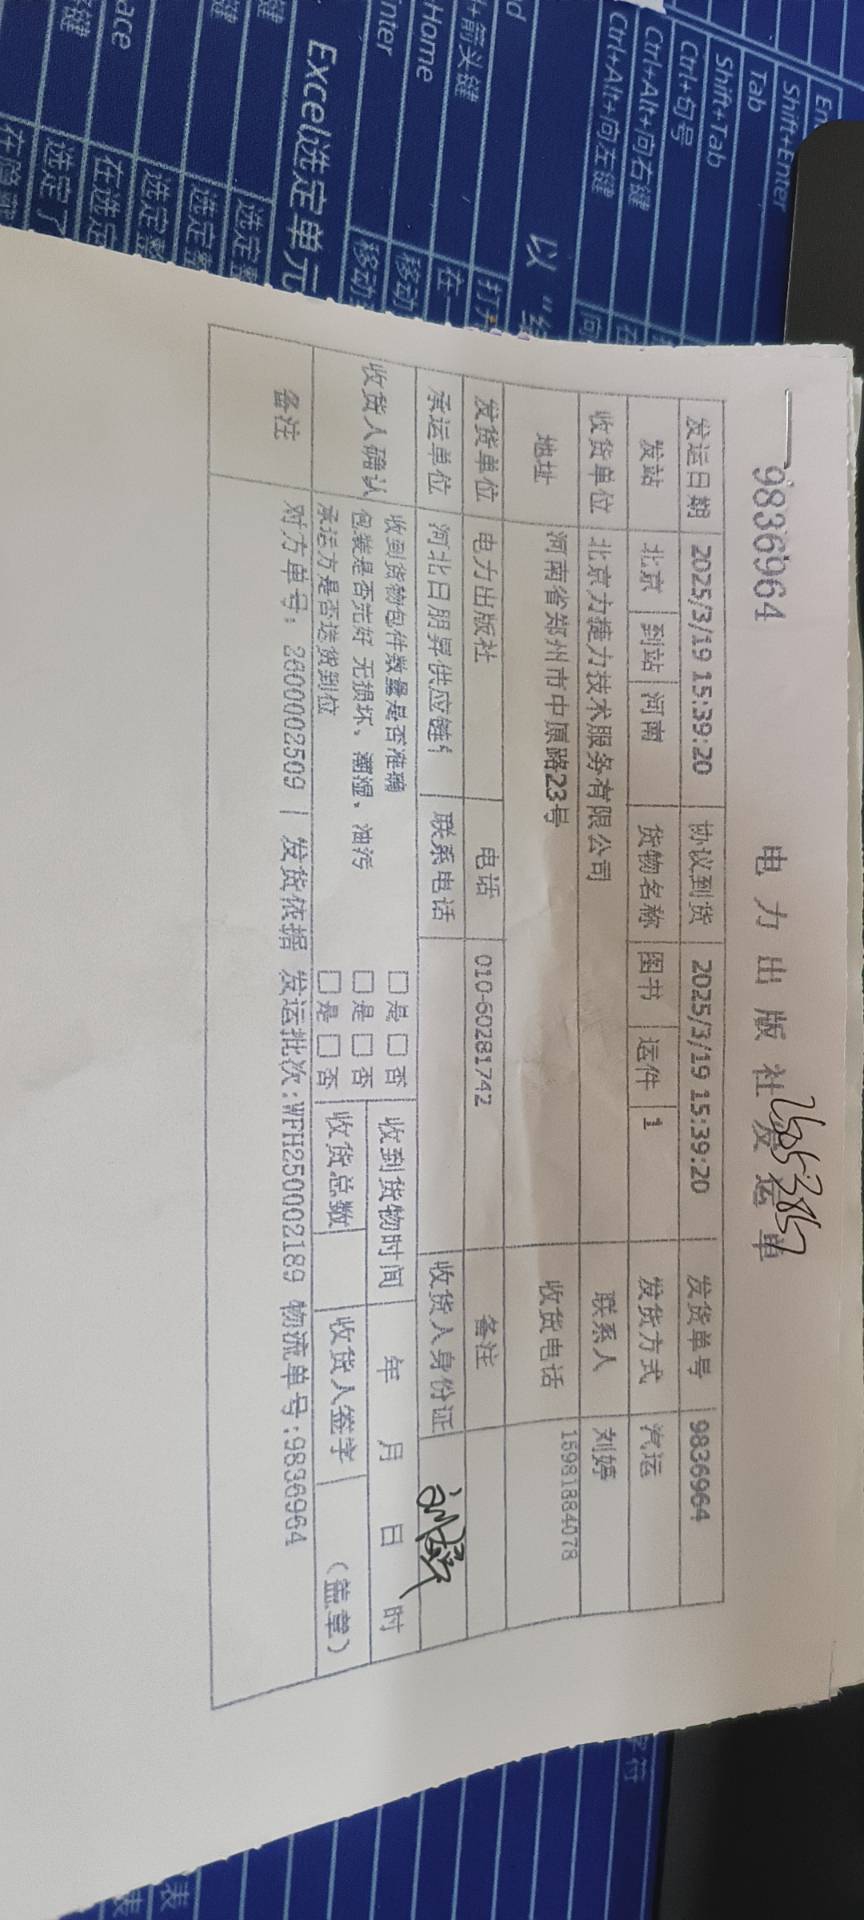 9836964
电力出版社发运单
发运日期 2025/3/19 15:39:20 协议到货 2025/3/19 15:39:20 发货单号 9836964
发站 北京 到站 河南 货物名称 图书 运件 1 发货方式 汽运
收货单位 北京力捷力技术服务有限公司 联系人 刘婷
地址 河南省郑州市中原路23号 收货电话 15981884078
发货单位 电力出版社 电话 010-60281742 备注
承运单位 河北日朋昇供应链 联系电话 收货人身份证
收货人确认 收到货物包件数量是否准确 □是 □否 收到货物时间 年 月 日 时
包装是否完好 无损坏、潮湿、油污 □是 □否
承运方是否送货到位 □是 □否 收货总数 收货人签字 (盖章)
备注 对方单号: 2600002509 | 发货依据 发运批次:WFH250002189 物流单号:9836964
Shift+Enter
Tab
Shift+Tab
Ctrl+句号
Ctrl+Alt+向右键
Ctrl+Alt+向左键
以"结
+箭头键
Home
Excel选定单元
移动
移动
选定整
选定整
选定整
在选定
选定了